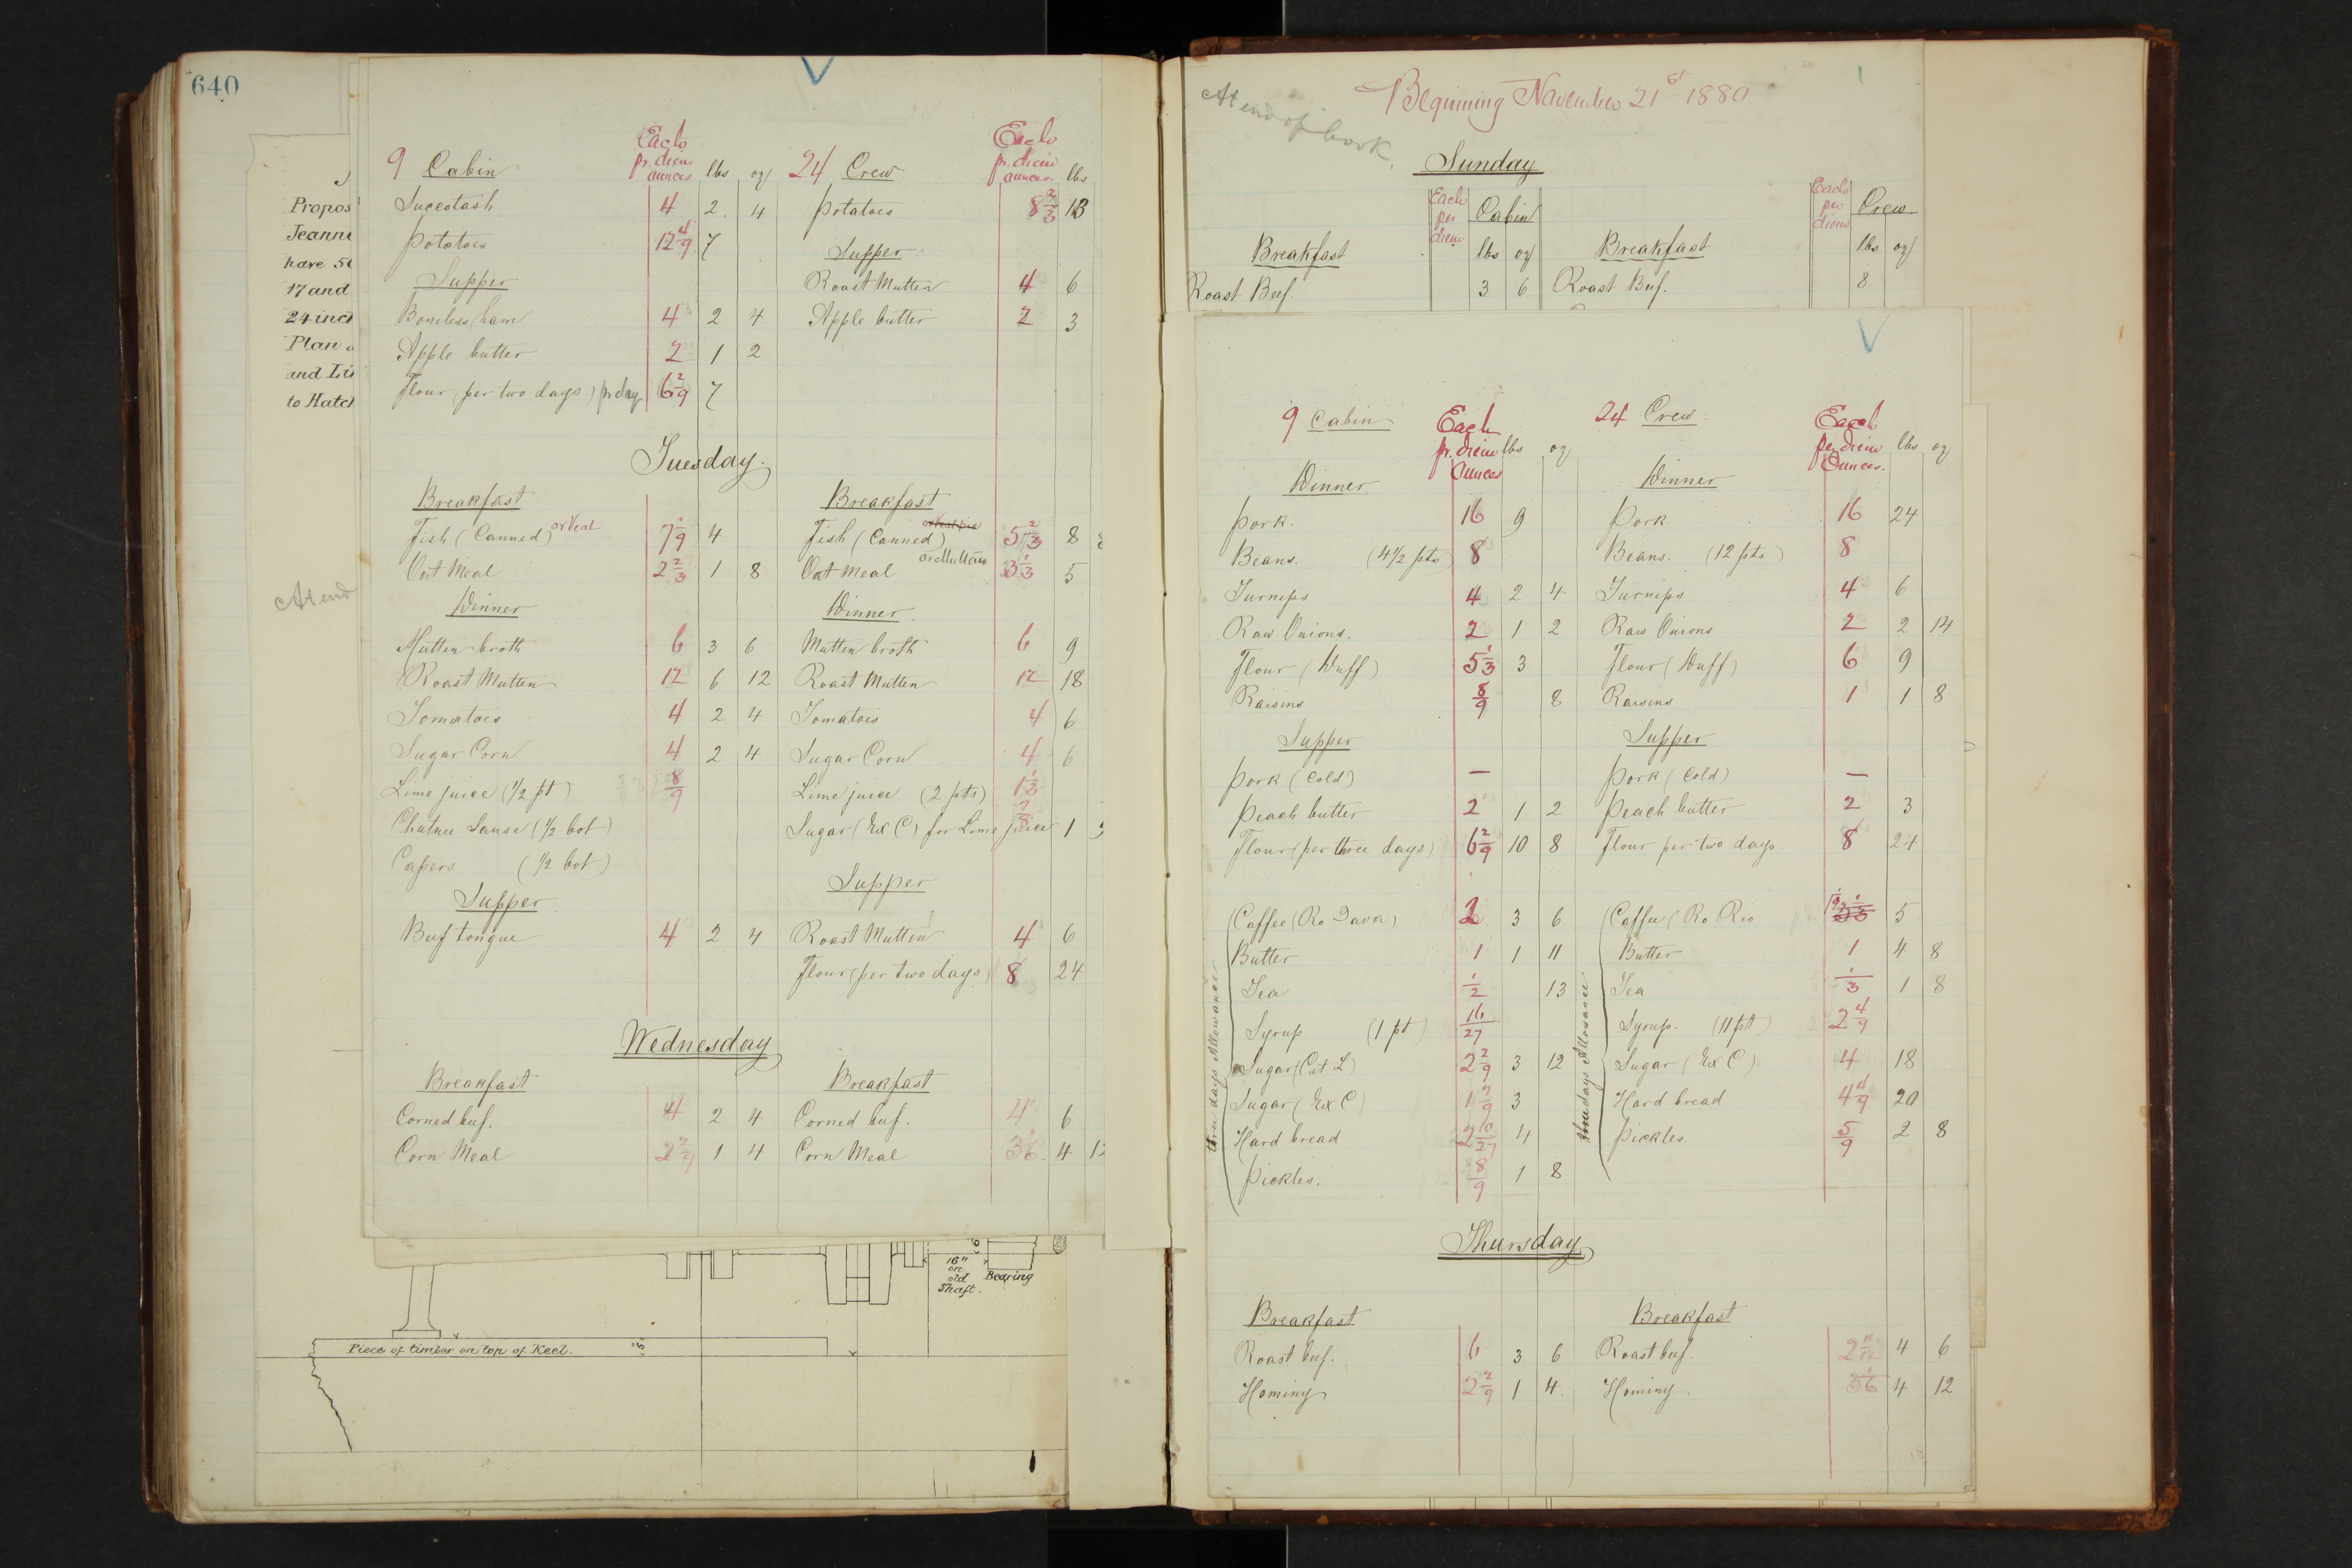 640
Propos
Jeanne
have 50
17 and
24 inch
Plan a
and Li
to Hatch
At end
9 Cabin Each pr. diem ounces lbs oz 24 Crew Each pr. diem ounces lbs
Succotash 4 2 4 Potatoes 8 2/3 13
Potatoes 12 4/9 7 Supper
Supper Roast Mutton 4 6
Boneless ham 4 2 4 Apple butter 2 3
Apple butter 2 1 2
Flour (per two days) pr day 6 2/9 7
Tuesday
Breakfast Breakfast
Fish (Canned) or Veal 7 1/9 4 Fish (Canned) or Veal pie or Mutton 5 2/3 8
Oat Meal 2 2/3 1 8 Oat Meal 3 1/3 5
Dinner Dinner
Mutton broth 6 3 6 Mutton broth 6 9
Roast Mutton 12 6 12 Roast Mutton 12 18
Tomatoes 4 2 4 Tomatoes 4 6
Sugar Corn 4 2 4 Sugar Corn 4 6
Lime juice (1/2 pt) 8/9 Lime juice (2 pts) 1 1/3
Chutnee Sause (1/2 bot) Sugar (Ex C) for Lime juice 1
Capers (1/2 bot)
Supper Supper
Beef tongue 4 2 4 Roast Mutton 4 6
Flour (per two days) 8 24
Wednesday
Breakfast Breakfast
Corned beef. 4 2 4 Corned beef. 4 6
Corn Meal 2 2/9 1 4 Corn Meal 3 1/6 4 12
16" on old Shaft. Bearing
Piece of timber on top of Keel. 5"
At end of book.
Beginning November 21st 1880
Sunday
Each per diem Cabin Each per diem Crew
Breakfast lbs oz Breakfast lbs oz
Roast Beef. 3 6 Roast Beef. 8
9 Cabin Each pr. diem Ounces lbs oz 24 Crew Each per diem Ounces. lbs oz
Dinner Dinner
Pork. 16 9 Pork 16 24
Beans. (4 1/2 pts) 8 Beans. (12 pts) 8
Turnips 4 2 4 Turnips 4 6
Raw Onions. 2 1 2 Raw Onions 2 2 14
Flour (Duff) 5 1/3 3 Flour (Duff) 6 9
Raisins 8/9 8 Raisins 1 1 8
Supper Supper
Pork (Cold) — Pork (Cold) —
Peach butter 2 1 2 Peach butter 2 3
Flour (per three days) 6 2/9 10 8 Flour per two days. 8 24
three days Allowance
Coffee (Ro Java) 2 3 6 Coffee (Ro Rio 5
Butter 1 1 11 Butter 1 4 8
Tea 1/2 13 Tea 1/3 1 8
Syrup (1 pt) 16/27 Syrup. (11 pt) 2 4/9
Sugar (Cut L) 2 2/9 3 12 Sugar (Ex C) 4 18
Sugar (Ex C) 1 7/9 3 Hard bread 4 4/9 20
Hard bread 2 10/27 4 Pickles. 5/9 2 8
Pickles. 8/9 1 8
three days Allowance
Thursday
Breakfast Breakfast
Roast beef. 6 3 6 Roast beef. 2 11/12 4 6
Hominy 2 2/9 1 4. Hominy 3 1/6 4 12